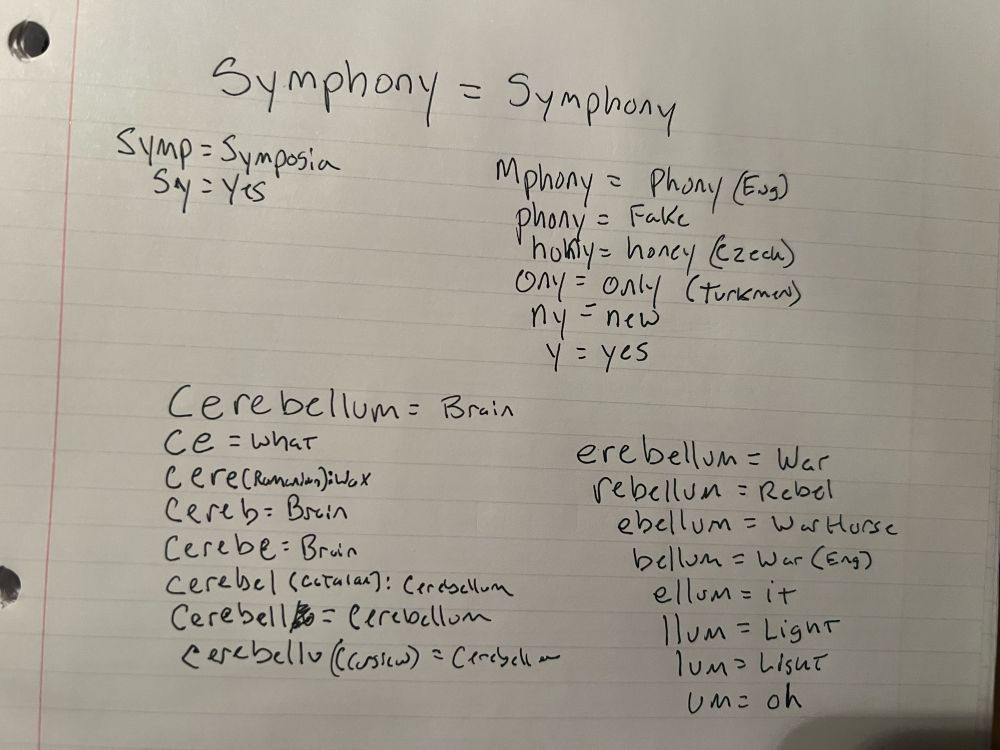 Symphony = Symphony
Symp = Symposia
Sy = Yes
Mphony = Phony (Eng)
phony = Fake
hony = honey (Czech)
ony = only (Turkmen)
ny = new
y = yes
Cerebellum = Brain
Ce = What
Cere (Romanian): Wax
Cereb = Brain
Cerebe = Brain
Cerebel (Catalan): Cerebellum
Cerebell = Cerebellum
Cerebellu (Corsican) = Cerebellum
erebellum = War
rebellum = Rebel
ebellum = War Horse
bellum = War (Eng)
ellum = it
llum = Light
lum = Light
um = oh